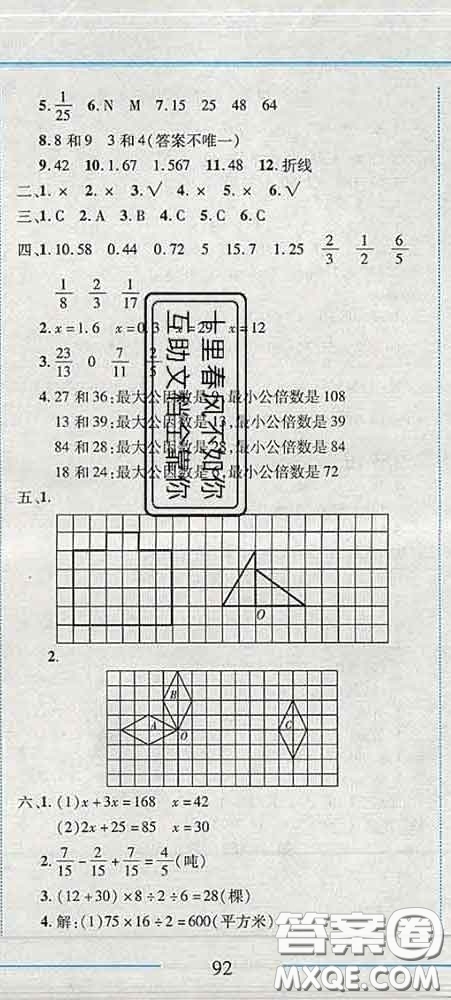 5. 1/25 6. N M 7. 15 25 48 64
8. 8 和 9 3 和 4(答案不唯一)
9. 42 10. 1.67 1.567 11. 48 12. 折线
二、1. × 2. × 3. √ 4. × 5. × 6. √
三、1. C 2. A 3. B 4. C 5. C 6. C
四、1. 10.58 0.44 0.72 5 15.7 1.25 2/3 1/2 6/5
1/8 2/3 1/17
2. x=1.6 x=0.3 x=29 x=12
3. 23/13 0 7/11 2/5
4. 27 和 36:最大公因数是 9,最小公倍数是 108
13 和 39:最大公因数是 13,最小公倍数是 39
84 和 28:最大公因数是 28,最小公倍数是 84
18 和 24:最大公因数是 6,最小公倍数是 72
十里春风不如你
互助文档全靠你
五、1.
O
2.
B
A
C
O
六、1. (1)x+3x=168 x=42
(2)2x+25=85 x=30
2. 7/15-2/15+7/15=4/5(吨)
3. (12+30)×8÷2÷6=28(棵)
4. 解:(1)75×16÷2=600(平方米)
92
答案圈
MXQE.COM